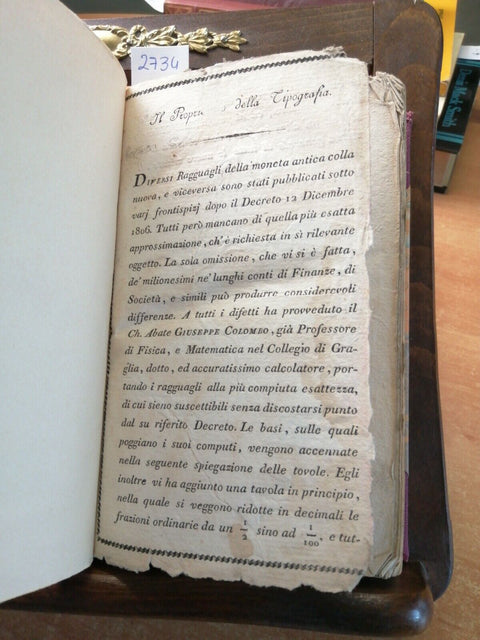 2734
Il Propr della Tipografia.
DIVERSI Ragguagli della moneta antica colla
nuova, e viceversa sono stati pubblicati sotto
varj frontispizj dopo il Decreto 12 Dicembre
1806. Tutti però mancano di quella più esatta
approssimazione, ch'è richiesta in sì rilevante
oggetto. La sola omissione, che vi si è fatta,
de' milionesimi ne' lunghi conti di Finanze, di
Società, e simili può produrre considerevoli
differenze. A tutti i difetti ha provveduto il
Ch. Abate GIUSEPPE COLOMBO, già Professore
di Fisica, e Matematica nel Collegio di Gra-
glia, dotto, ed accuratissimo calcolatore, por-
tando i ragguagli alla più compiuta esattezza,
di cui sieno suscettibili senza discostarsi punto
dal su riferito Decreto. Le basi, sulle quali
poggiano i suoi computi, vengono accennate
nella seguente spiegazione delle tovole. Egli
inoltre vi ha aggiunto una tavola in principio,
nella quale si veggono ridotte in decimali le
frazioni ordinarie da un 1/2 sino ad 1/100, e tut-